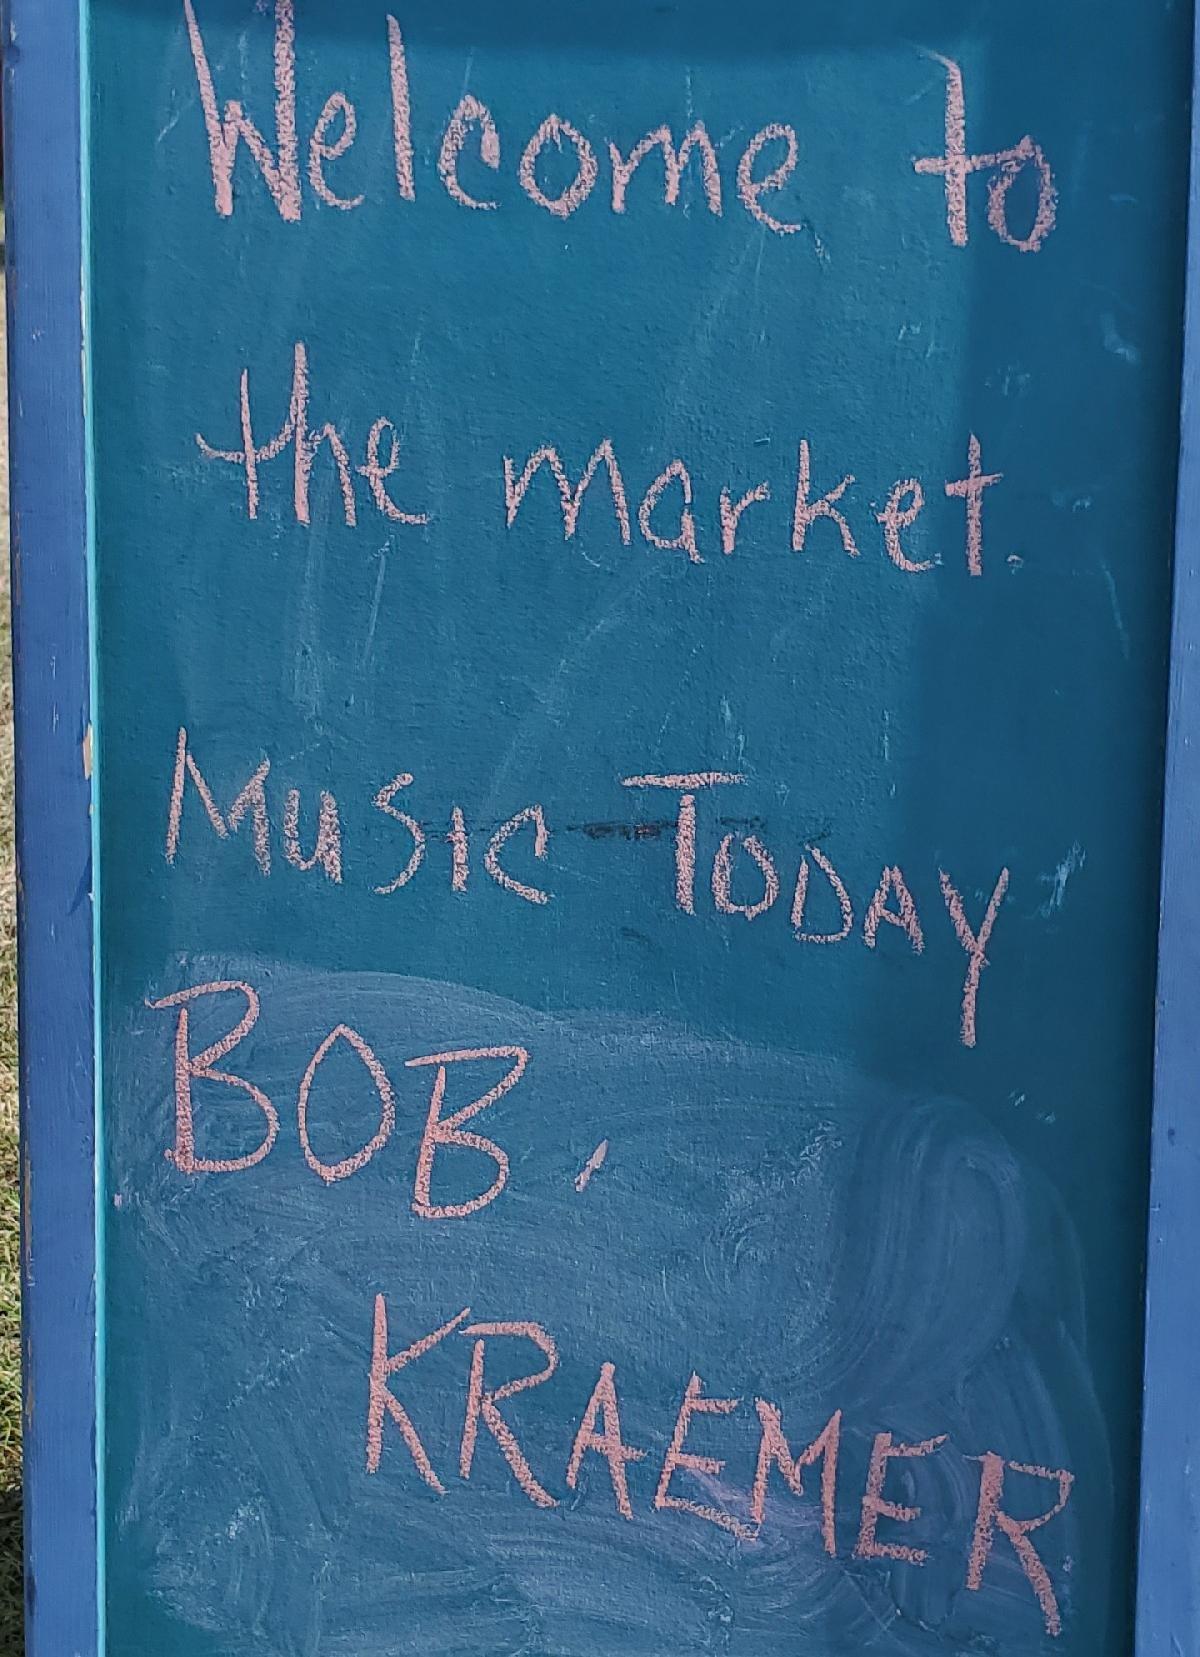 Welcome to
the market.
MuSIC TODAY
BOB,
KRAEMER